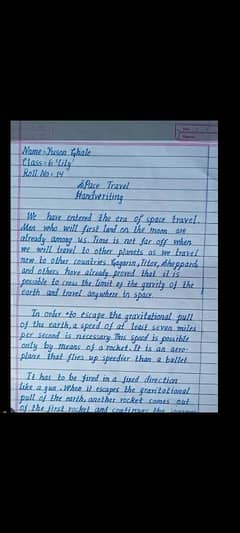 Name - Yuson Ghale
Class - 6 'Lily'
Roll No - 14
Space Travel
Handwriting
We have entered the era of space travel.
Men who will first land on the moon are
already among us. Time is not far off when
we will travel to other planets as we travel
now to other countries. Gagarin, Titov, Sheppard
and others have already proved that it is
possible to cross the limit of the gravity of the
earth and travel anywhere in space.
In order to escape the gravitational pull
of the earth, a speed of at least seven miles
per second is necessary. This speed is possible
only by means of a rocket. It is an aero-
plane that flies up speedier than a bullet.
It has to be fired in a fixed direction
like a gun. When it escapes the gravitational
pull of the earth, another rocket comes out
of the first rocket and continues the journey